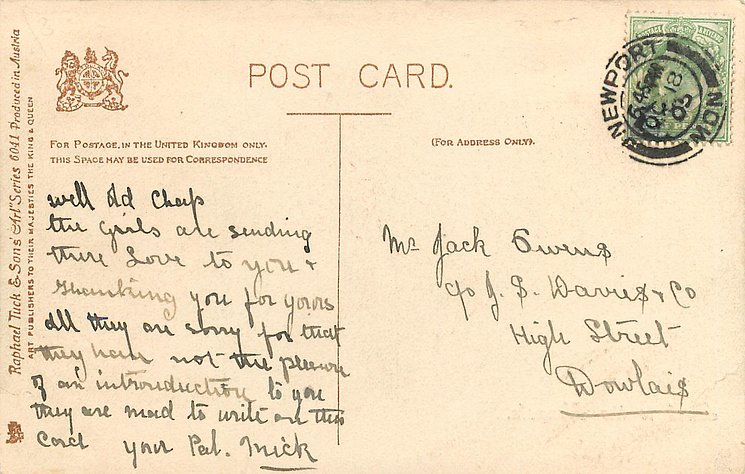 POST CARD.
FOR POSTAGE, IN THE UNITED KINGDOM ONLY,
THIS SPACE MAY BE USED FOR CORRESPONDENCE
(FOR ADDRESS ONLY).
Raphael Tuck & Sons' "Art" Series 6041 Produced in Austria
ART PUBLISHERS TO THEIR MAJESTIES THE KING & QUEEN
NEWPORT MON
well old Chap
the girls are sending
there Love to you &
thanking you for yours
all they are sorry for that
they have not the pleasure
of an introduction to you
they are mad to write on this
Card your Pal. Mick
Mr Jack Owens
c/o J. S. Davies & Co
High Street
Dowlais